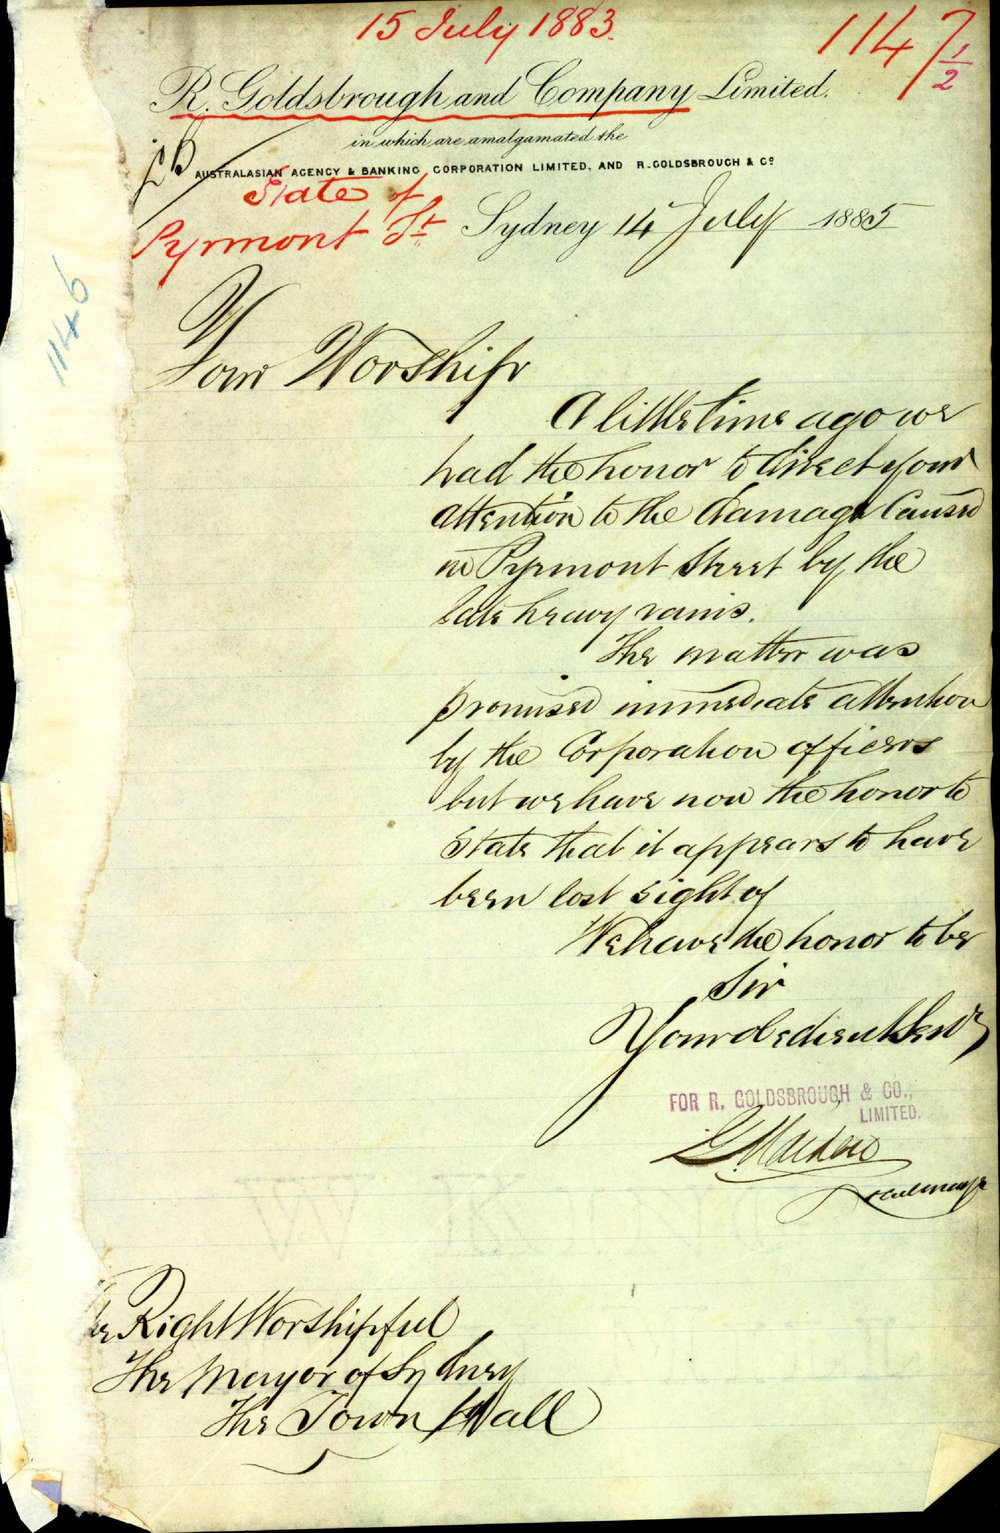 15 July 1883.
1147 1/2
R. Goldsbrough and Company Limited.
in which are amalgamated the
AUSTRALASIAN AGENCY & BANKING CORPORATION LIMITED, AND R. GOLDSBROUGH & Co
State of
Pyrmont St
Sydney 14 July 1885
1146
Your Worship
A little time ago we
had the honor to direct your
attention to the damage caused
in Pyrmont Street by the
late heavy rains.
The matter was
promised immediate attention
by the Corporation officers
but we have now the honor to
state that it appears to have
been lost sight of
We have the honor to be
Sir
Your obedient Servts
FOR R. GOLDSBROUGH & CO.,
LIMITED.
The Right Worshipful
The Mayor of Sydney
The Town Hall